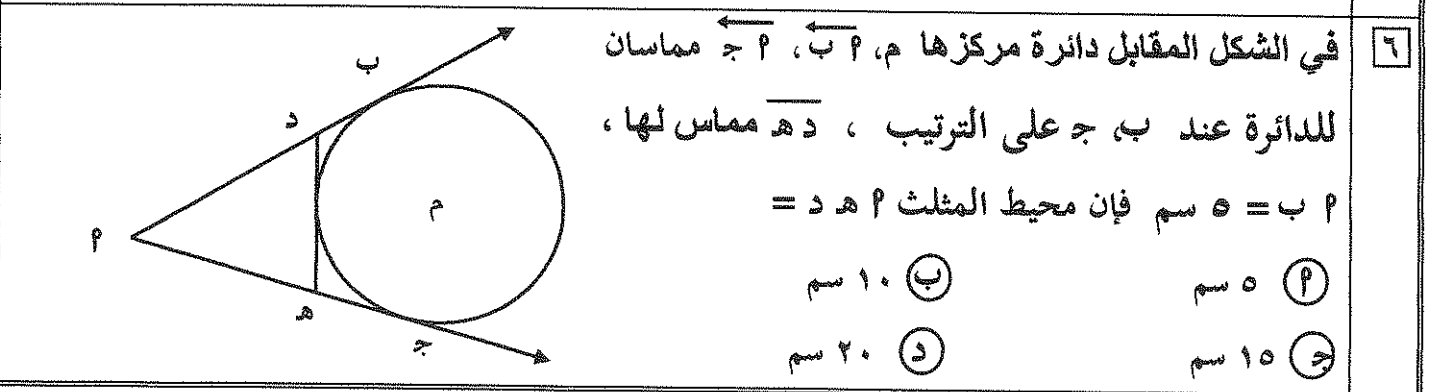 ٦
في الشكل المقابل دائرة مركزها م، م ب، م ج مماسان
للدائرة عند ب، ج على الترتيب ، د هـ مماس لها ،
م ب = ٥ سم فإن محيط المثلث م هـ د =
م ٥ سم
ب ١٠ سم
ج ١٥ سم
د ٢٠ سم
ب
د
م
م
هـ
ج